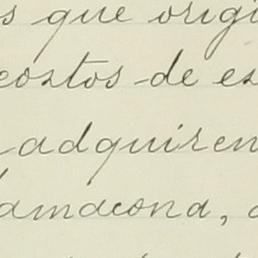 s que origi
costos de es
adquiren
amacona,